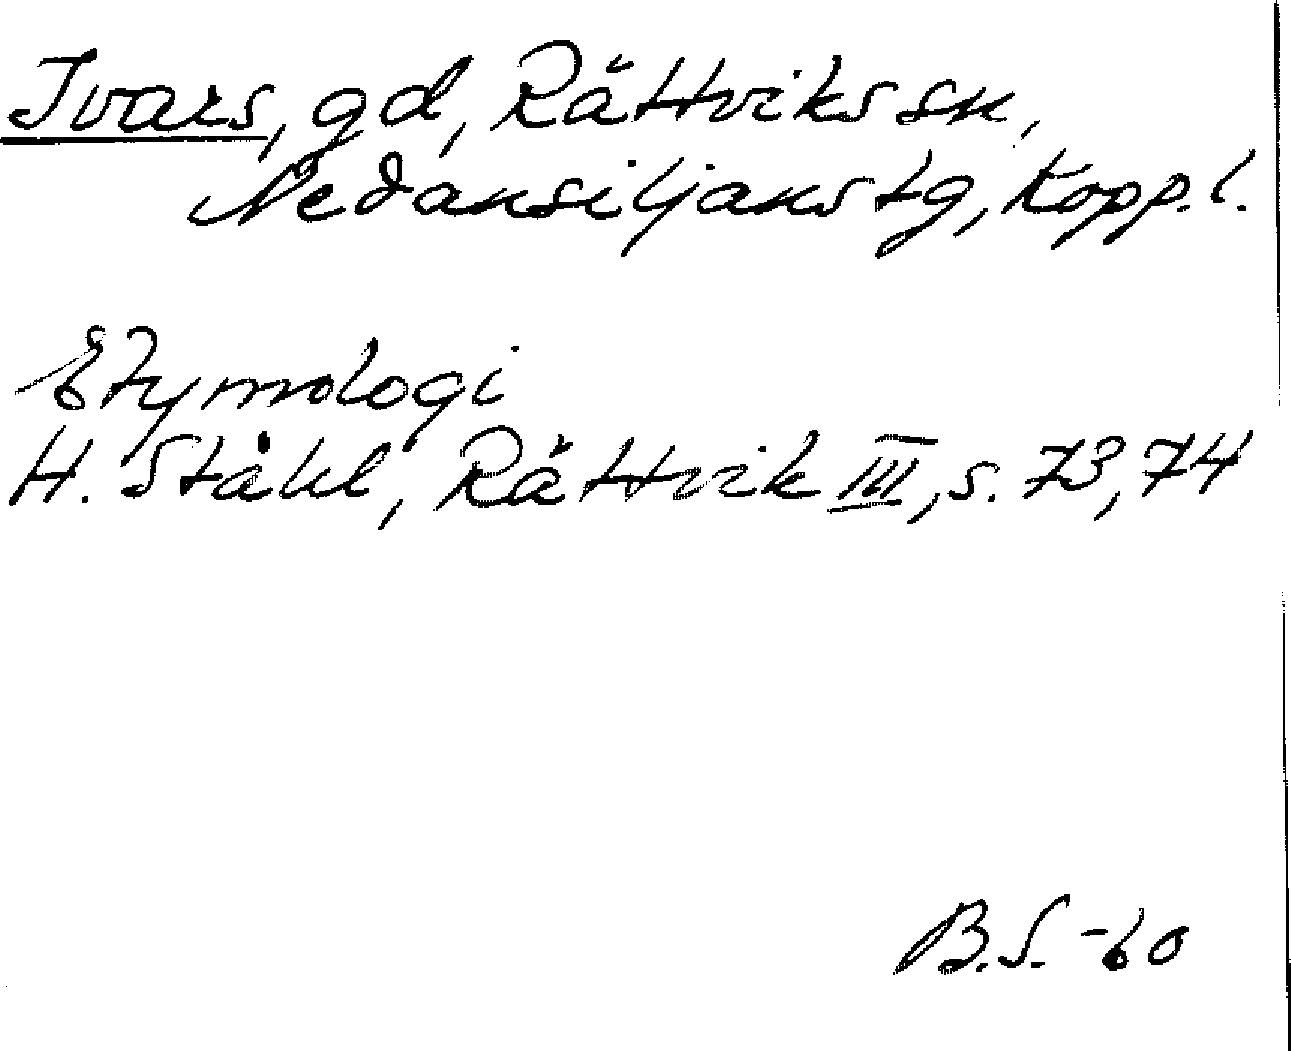 Ivars, gd, Rättviks sn,
Nedansiljans tg, Kopp. l.
Etymologi
H. Ståhl, Rättvik III, s. 73, 74
B.S. -60